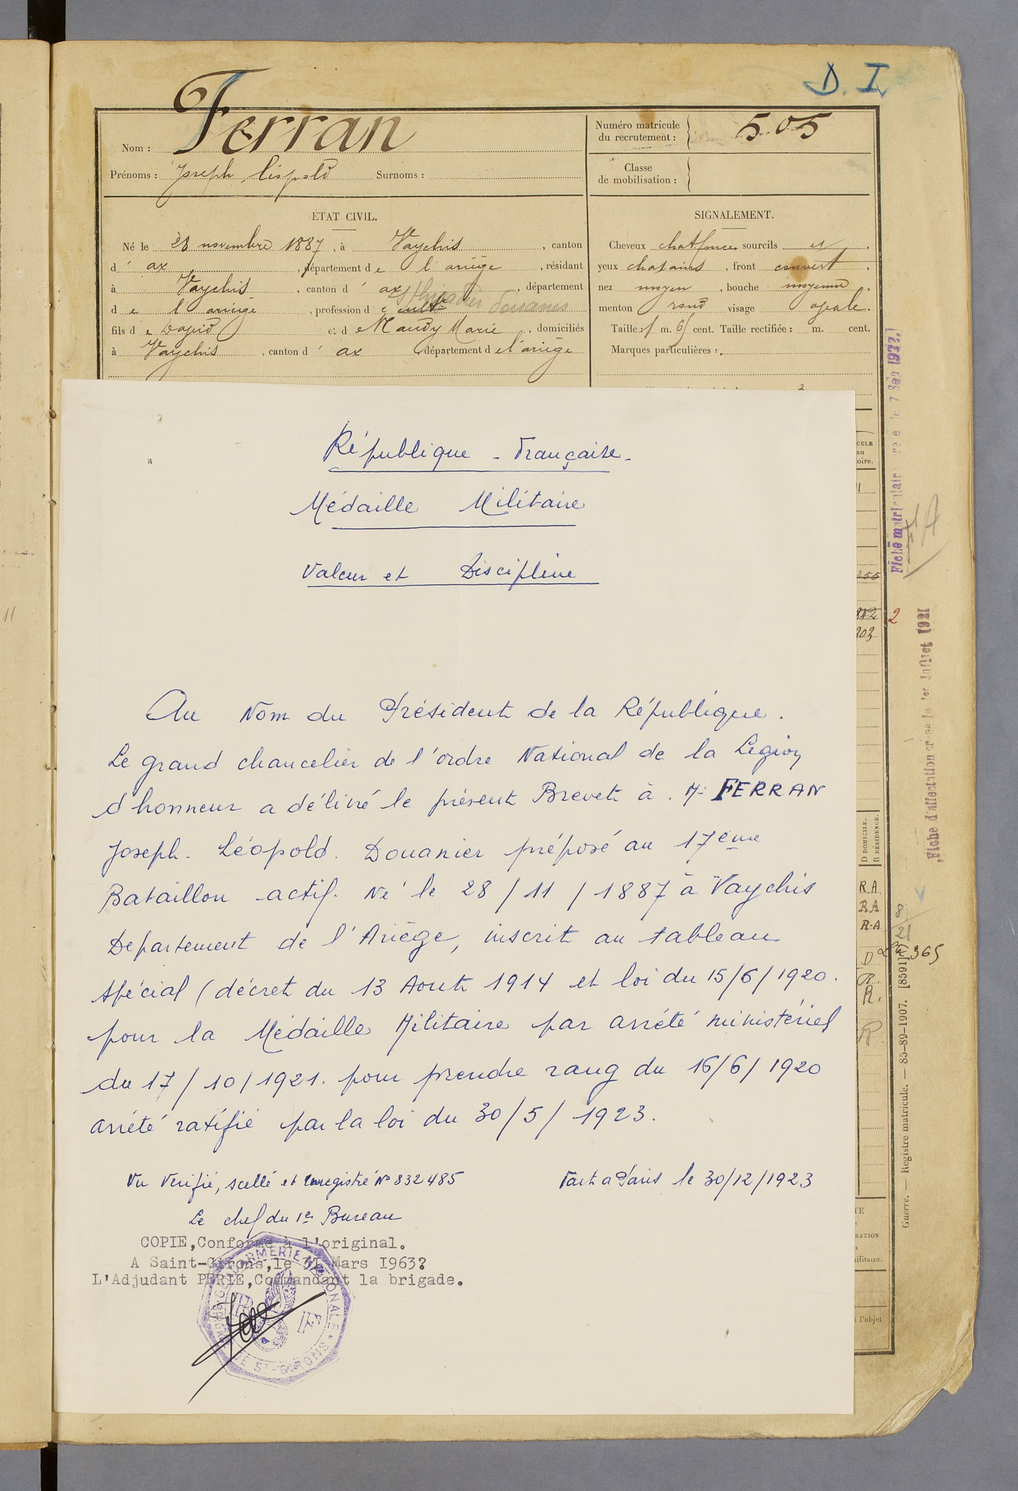 D. I.
Nom : Ferran
Numéro matricule
du recrutement : 505
Prénoms : Joseph, Léopold Surnoms :
Classe
de mobilisation :
ETAT CIVIL.
Né le 28 novembre 1887, à Vaychis, canton
d' ax, département de l'ariège, résidant
à Vaychis, canton d' ax, département
de l'ariège, profession de cult Douanes
fils de David et de Naudy Marie, domiciliés
à Vaychis, canton d' ax, département de l'ariège
SIGNALEMENT.
Cheveux chat foncés sourcils et
yeux chatains, front couvert
nez moyen, bouche moyenne
menton rond visage ovale.
Taille : 1 m. 61 cent. Taille rectifiée : m. cent.
Marques particulières :
République - Française -
Médaille Militaire
Valeur et Discipline
Au Nom du Président de la République.
Le grand chancelier de l'ordre National de la Légion
d'honneur a délivré le présent Brevet à . Mr FERRAN
Joseph. Léopold. Douanier préposé au 17ème
Bataillon actif. Né le 28/11/1887 à Vaychis
Departement de l'Ariège, inscrit au tableau
spécial (décret du 13 Aout 1914 et loi du 15/6/1920.
pour la Médaille Militaire par arrêté ministériel
du 17/10/1921. pour prendre rang du 16/6/1920
arrêté ratifié par la loi du 30/5/1923.
Vu Vérifié, scellé et enregistré N° 832485
Fait a Paris le 30/12/1923
Le chef du 1er Bureau
COPIE,Conforme à l'original.
A Saint-Girons,le Mars 1963?
L'Adjudant PERIE,Commandant la brigade.
GENDARMERIE NATIONALE
ST-GIRONS
Fiche matriculaire le 7 Sep 1933.
Fiche d'affectation 1er Juillet 1921
D DOMICILE.
R RÉSIDENCE.
R.A
R.A
R.A
D
R.
R
8
21
365
2
203
11
Guerre. — Registre matricule. — 85-89-1907. [8591]